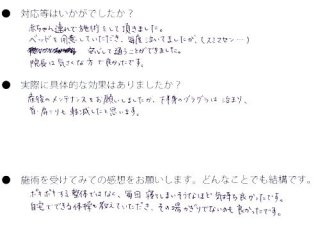 ● 対応等はいかがでしたか？
赤ちゃん連れで施術をして頂きました。
ベッドを用意していただき、毎度泣いてましたが、(スミマセン…)
安心して通うことができました。
院長は気さくな方で良かったです。
● 実際に具体的な効果はありましたか？
産後のメンテナンスをお願いしましたが、下半身のグラグラは治まり、
首・肩こりも軽減したと思います。
● 施術を受けてみての感想をお願いします。どんなことでも結構です。
ボキボキする整体ではなく、毎回寝てしまいそうなほど気持ち良かったです。
自宅でできる体操も教えていただき、その場かぎりでないのも良かったです。